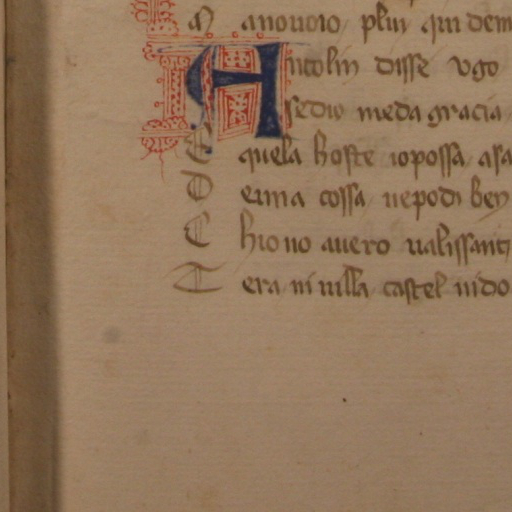 M anouoio plui qui dem
Antolin disse ugo
sedio meda gracia
E quela hoste iopossa asa
D euna cossa uepodi ben
C hiono auero ualissant
T era ni uilla castel nido